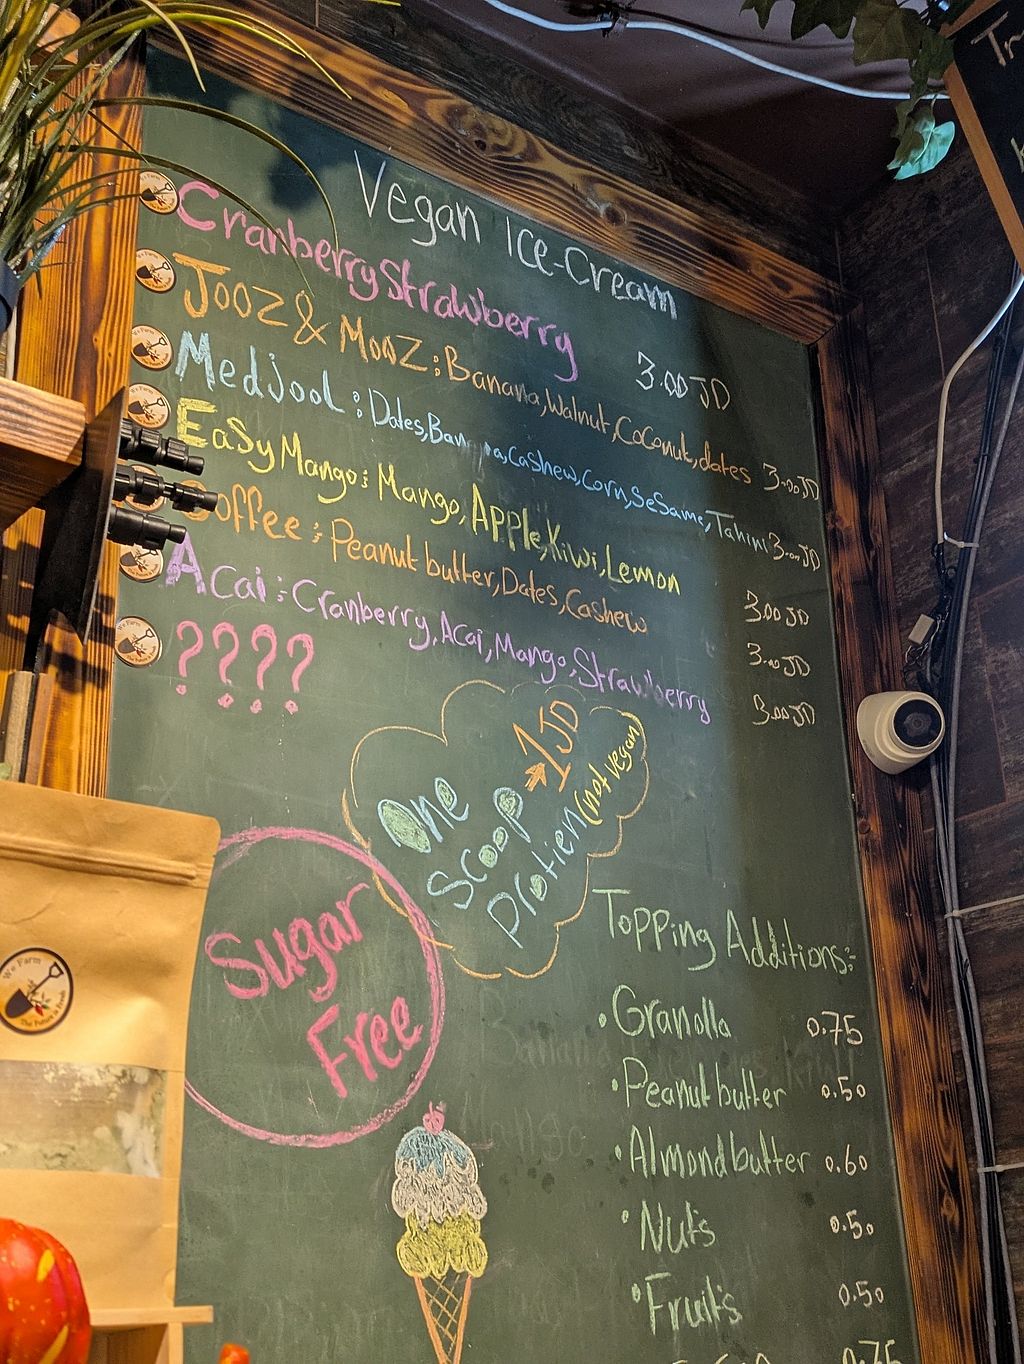 Vegan Ice-Cream
Cranberry Strawberry 3.00 JD
Jooz & Mooz: Banana, Walnut, Coconut, dates 3.00 JD
Medjool: Dates, Banana, Cashew, Corn, SeSame, Tahini 3.00 JD
Easy Mango: Mango, Apple, Kiwi, Lemon 3.00 JD
Coffee: Peanut butter, Dates, Cashew 3.00 JD
Acai: Cranberry, Acai, Mango, Strawberry 3.00 JD
????
One
Scoop → 1 JD
Protien (not vegan)
Sugar
Free
Topping Additions:
• Granolla 0.75
• Peanut butter 0.50
• Almond butter 0.60
• Nuts 0.50
• Fruits 0.50
0.75
We Farm
The Future is Fresh